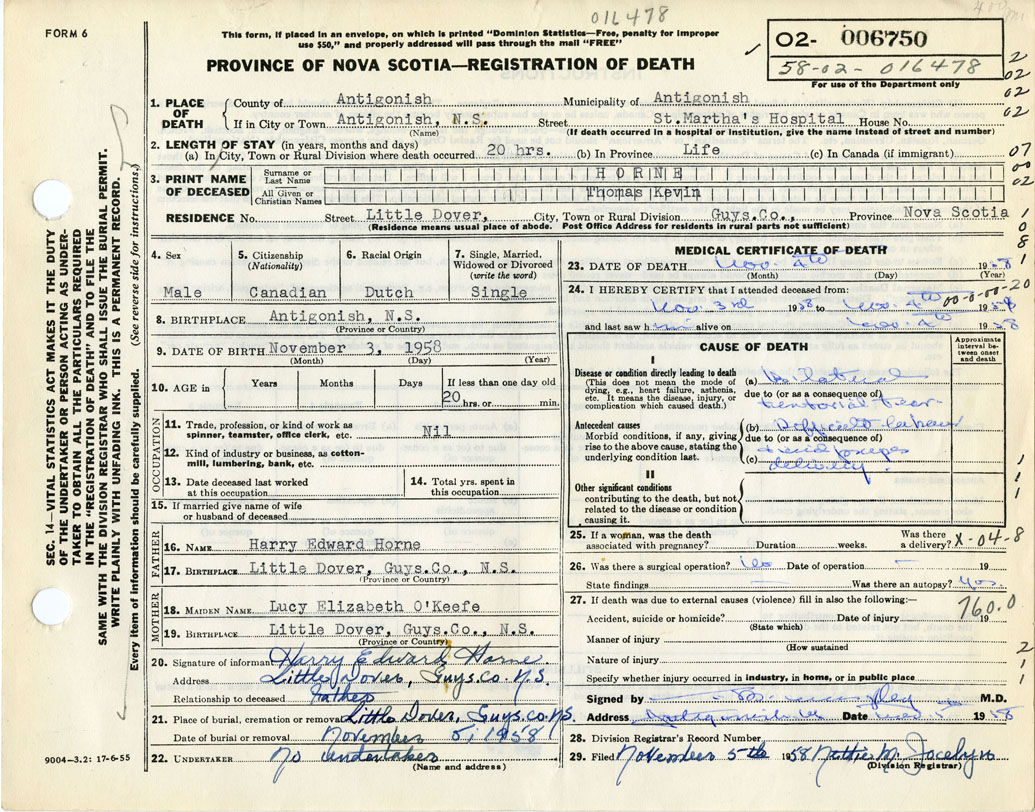 016478
FORM 6
This form, if placed in an envelope, on which is printed "Dominion Statistics—Free, penalty for improper
use $50," and properly addressed will pass through the mail "FREE"
02- 006750
58-02- 016478
For use of the Department only
PROVINCE OF NOVA SCOTIA—REGISTRATION OF DEATH
SEC. 14—VITAL STATISTICS ACT MAKES IT THE DUTY
OF THE UNDERTAKER OR PERSON ACTING AS UNDER-
TAKER TO OBTAIN ALL THE PARTICULARS REQUIRED
IN THE "REGISTRATION OF DEATH" AND TO FILE THE
SAME WITH THE DIVISION REGISTRAR WHO SHALL ISSUE THE BURIAL PERMIT.
WRITE PLAINLY WITH UNFADING INK. THIS IS A PERMANENT RECORD.
Every item of information should be carefully supplied. (See reverse side for instructions.)
1. PLACE OF DEATH
County of Antigonish Municipality of Antigonish
If in City or Town Antigonish, N.S. Street St.Martha's Hospital House No.
(Name) (If death occurred in a hospital or institution, give the name instead of street and number)
2. LENGTH OF STAY (in years, months and days)
(a) In City, Town or Rural Division where death occurred 20 hrs. (b) In Province Life (c) In Canada (if immigrant)
3. PRINT NAME OF DECEASED
Surname or Last Name HORNE
All Given or Christian Names Thomas Kevin
RESIDENCE No. Street Little Dover, City, Town or Rural Division Guys.Co., Province Nova Scotia
(Residence means usual place of abode. Post Office Address for residents in rural parts not sufficient)
4. Sex 5. Citizenship (Nationality) 6. Racial Origin 7. Single, Married, Widowed or Divorced (write the word)
Male Canadian Dutch Single
8. BIRTHPLACE Antigonish, N.S.
(Province or Country)
9. DATE OF BIRTH November 3, 1958
(Month) (Day) (Year)
10. AGE in Years Months Days If less than one day old
20 hrs. or min.
OCCUPATION
11. Trade, profession, or kind of work as
spinner, teamster, office clerk, etc. Nil
12. Kind of industry or business, as cotton-
mill, lumbering, bank, etc.
13. Date deceased last worked at this occupation
14. Total yrs. spent in this occupation
15. If married give name of wife
or husband of deceased
FATHER
16. NAME Harry Edward Horne
17. BIRTHPLACE Little Dover, Guys.Co., N.S.
(Province or Country)
MOTHER
18. MAIDEN NAME Lucy Elizabeth O'Keefe
19. BIRTHPLACE Little Dover, Guys.Co., N.S.
(Province or Country)
20. Signature of informant Harry Edward Horne
Address Little Dover, Guys.co. N.S.
Relationship to deceased Father
21. Place of burial, cremation or removal Little Dover, Guys.co. N.S.
Date of burial or removal November 5, 1958
22. UNDERTAKER No Undertaker
(Name and address)
9004—3.2: 17-6-55
MEDICAL CERTIFICATE OF DEATH
23. DATE OF DEATH Nov. 4th 1958
(Month) (Day) (Year)
24. I HEREBY CERTIFY that I attended deceased from:
00-0-00-20
Nov. 3rd 1958 Nov. 4th 1958
and last saw him alive on Nov. 4th 1958
CAUSE OF DEATH
Approximate interval between onset and death
I
Disease or condition directly leading to death
(This does not mean the mode of dying, e.g., heart failure, asthenia, etc. It means the disease, injury, or complication which caused death.)
(a) Bilateral
due to (or as a consequence of)
tentorial tear
Antecedent causes
Morbid conditions, if any, giving rise to the above cause, stating the underlying condition last.
(b) Difficult labour
due to (or as a consequence of)
forceps
(c) delivery
II
Other significant conditions
contributing to the death, but not related to the disease or condition causing it.
25. If a woman, was the death
associated with pregnancy? Duration weeks. Was there a delivery? X-04-8
26. Was there a surgical operation? Date of operation 19
State findings Was there an autopsy? Yes.
27. If death was due to external causes (violence) fill in also the following:—
760.0
Accident, suicide or homicide? Date of injury 19
(State which)
Manner of injury
(How sustained
Nature of injury
Specify whether injury occurred in industry, in home, or in public place
Signed by M.D.
Address Antigonish Date Nov. 5 1958
28. Division Registrar's Record Number
29. Filed November 5th 1958 Nettie M. Jocelyn
(Division Registrar)
2
02
02
02
07
07
02
1
0
8
1
1
1
1
2
1
1